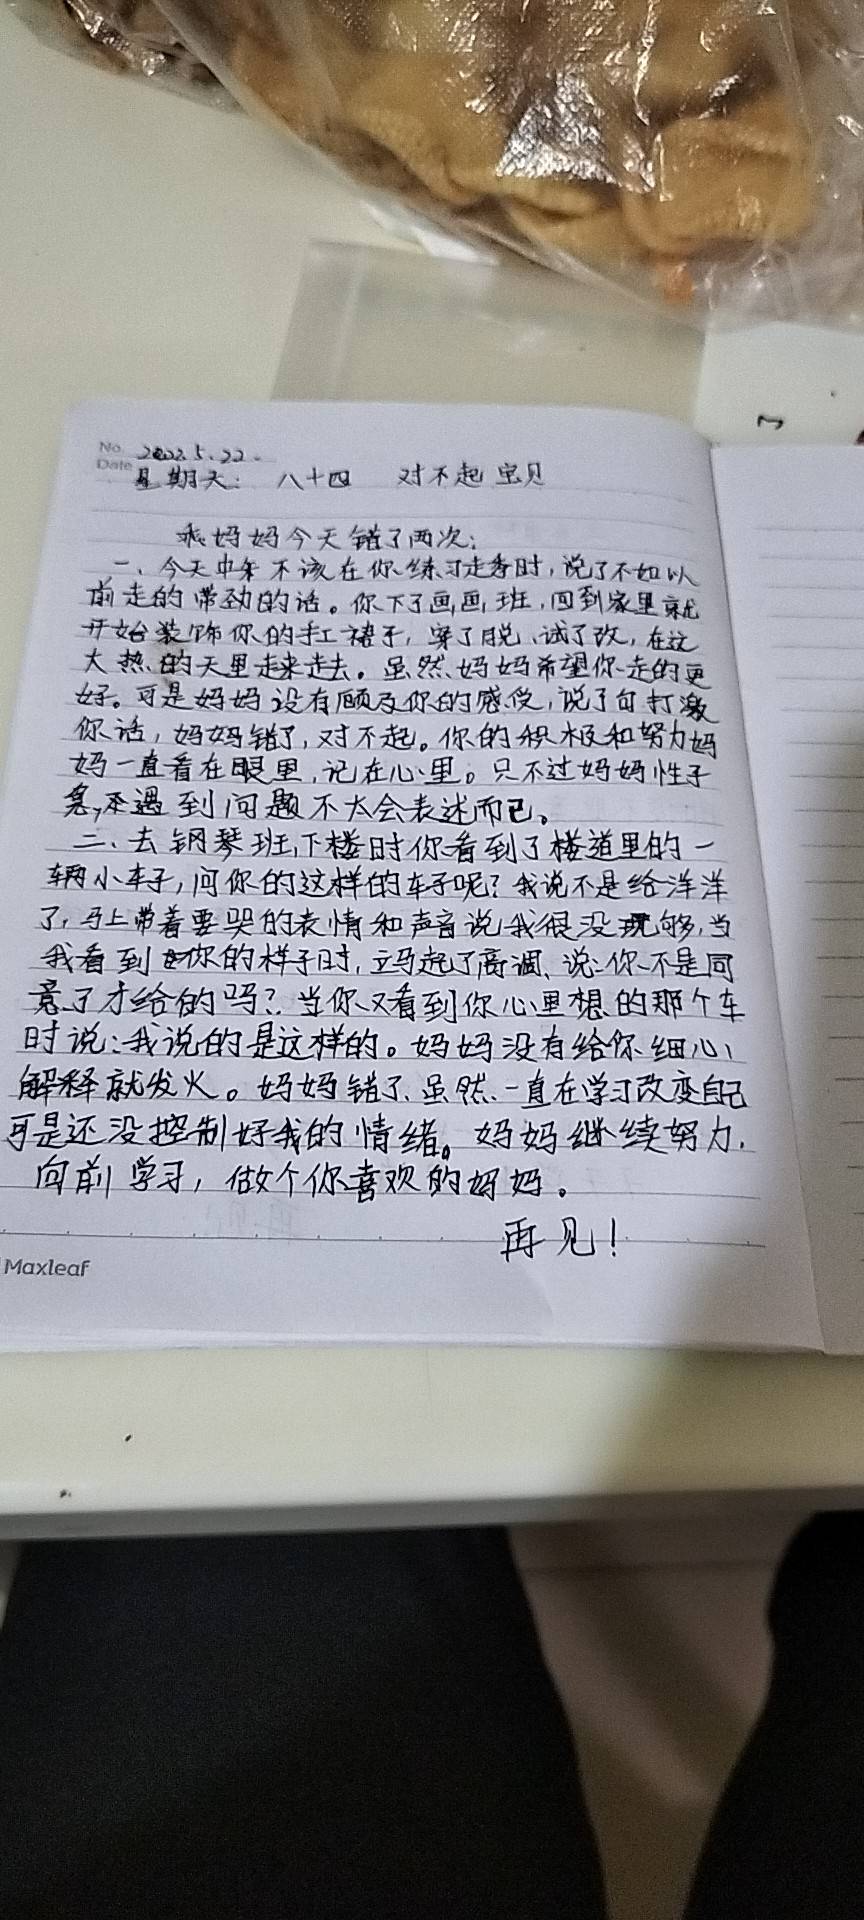 No.
Date
2022.5.22.
星期天: 八十四 对不起宝贝
妈妈今天错了两次:
一、今天中午不该在你练习走秀时,说了不如以
前走的带劲的话。你下了画画班,回到家里就
开始装饰你的手工裙子,穿了脱,试了改,在这
大热的天里走来走去。虽然妈妈希望你走的更
好。可是妈妈没有顾及你的感受,说了句打激
你话,妈妈错了,对不起。你的积极和努力妈
妈一直看在眼里,记在心里。只不过妈妈性子
急,遇到问题不太会表述而已。
二、去钢琴班,下楼时你看到了楼道里的一
辆小车子,问你的这样的车子呢?我说不是给洋洋
了,马上带着要哭的表情和声音说我很没玩够,当
我看到你的样子时,立马起了高调、说:你不是同
意了才给的吗?当你又看到你心里想的那个车
时说:我说的是这样的。妈妈没有给你细心
解释就发火。妈妈错了、虽然一直在学习改变自己
可是还没控制好我的情绪。妈妈继续努力,
向前学习,做个你喜欢的妈妈。
再见!
Maxleaf